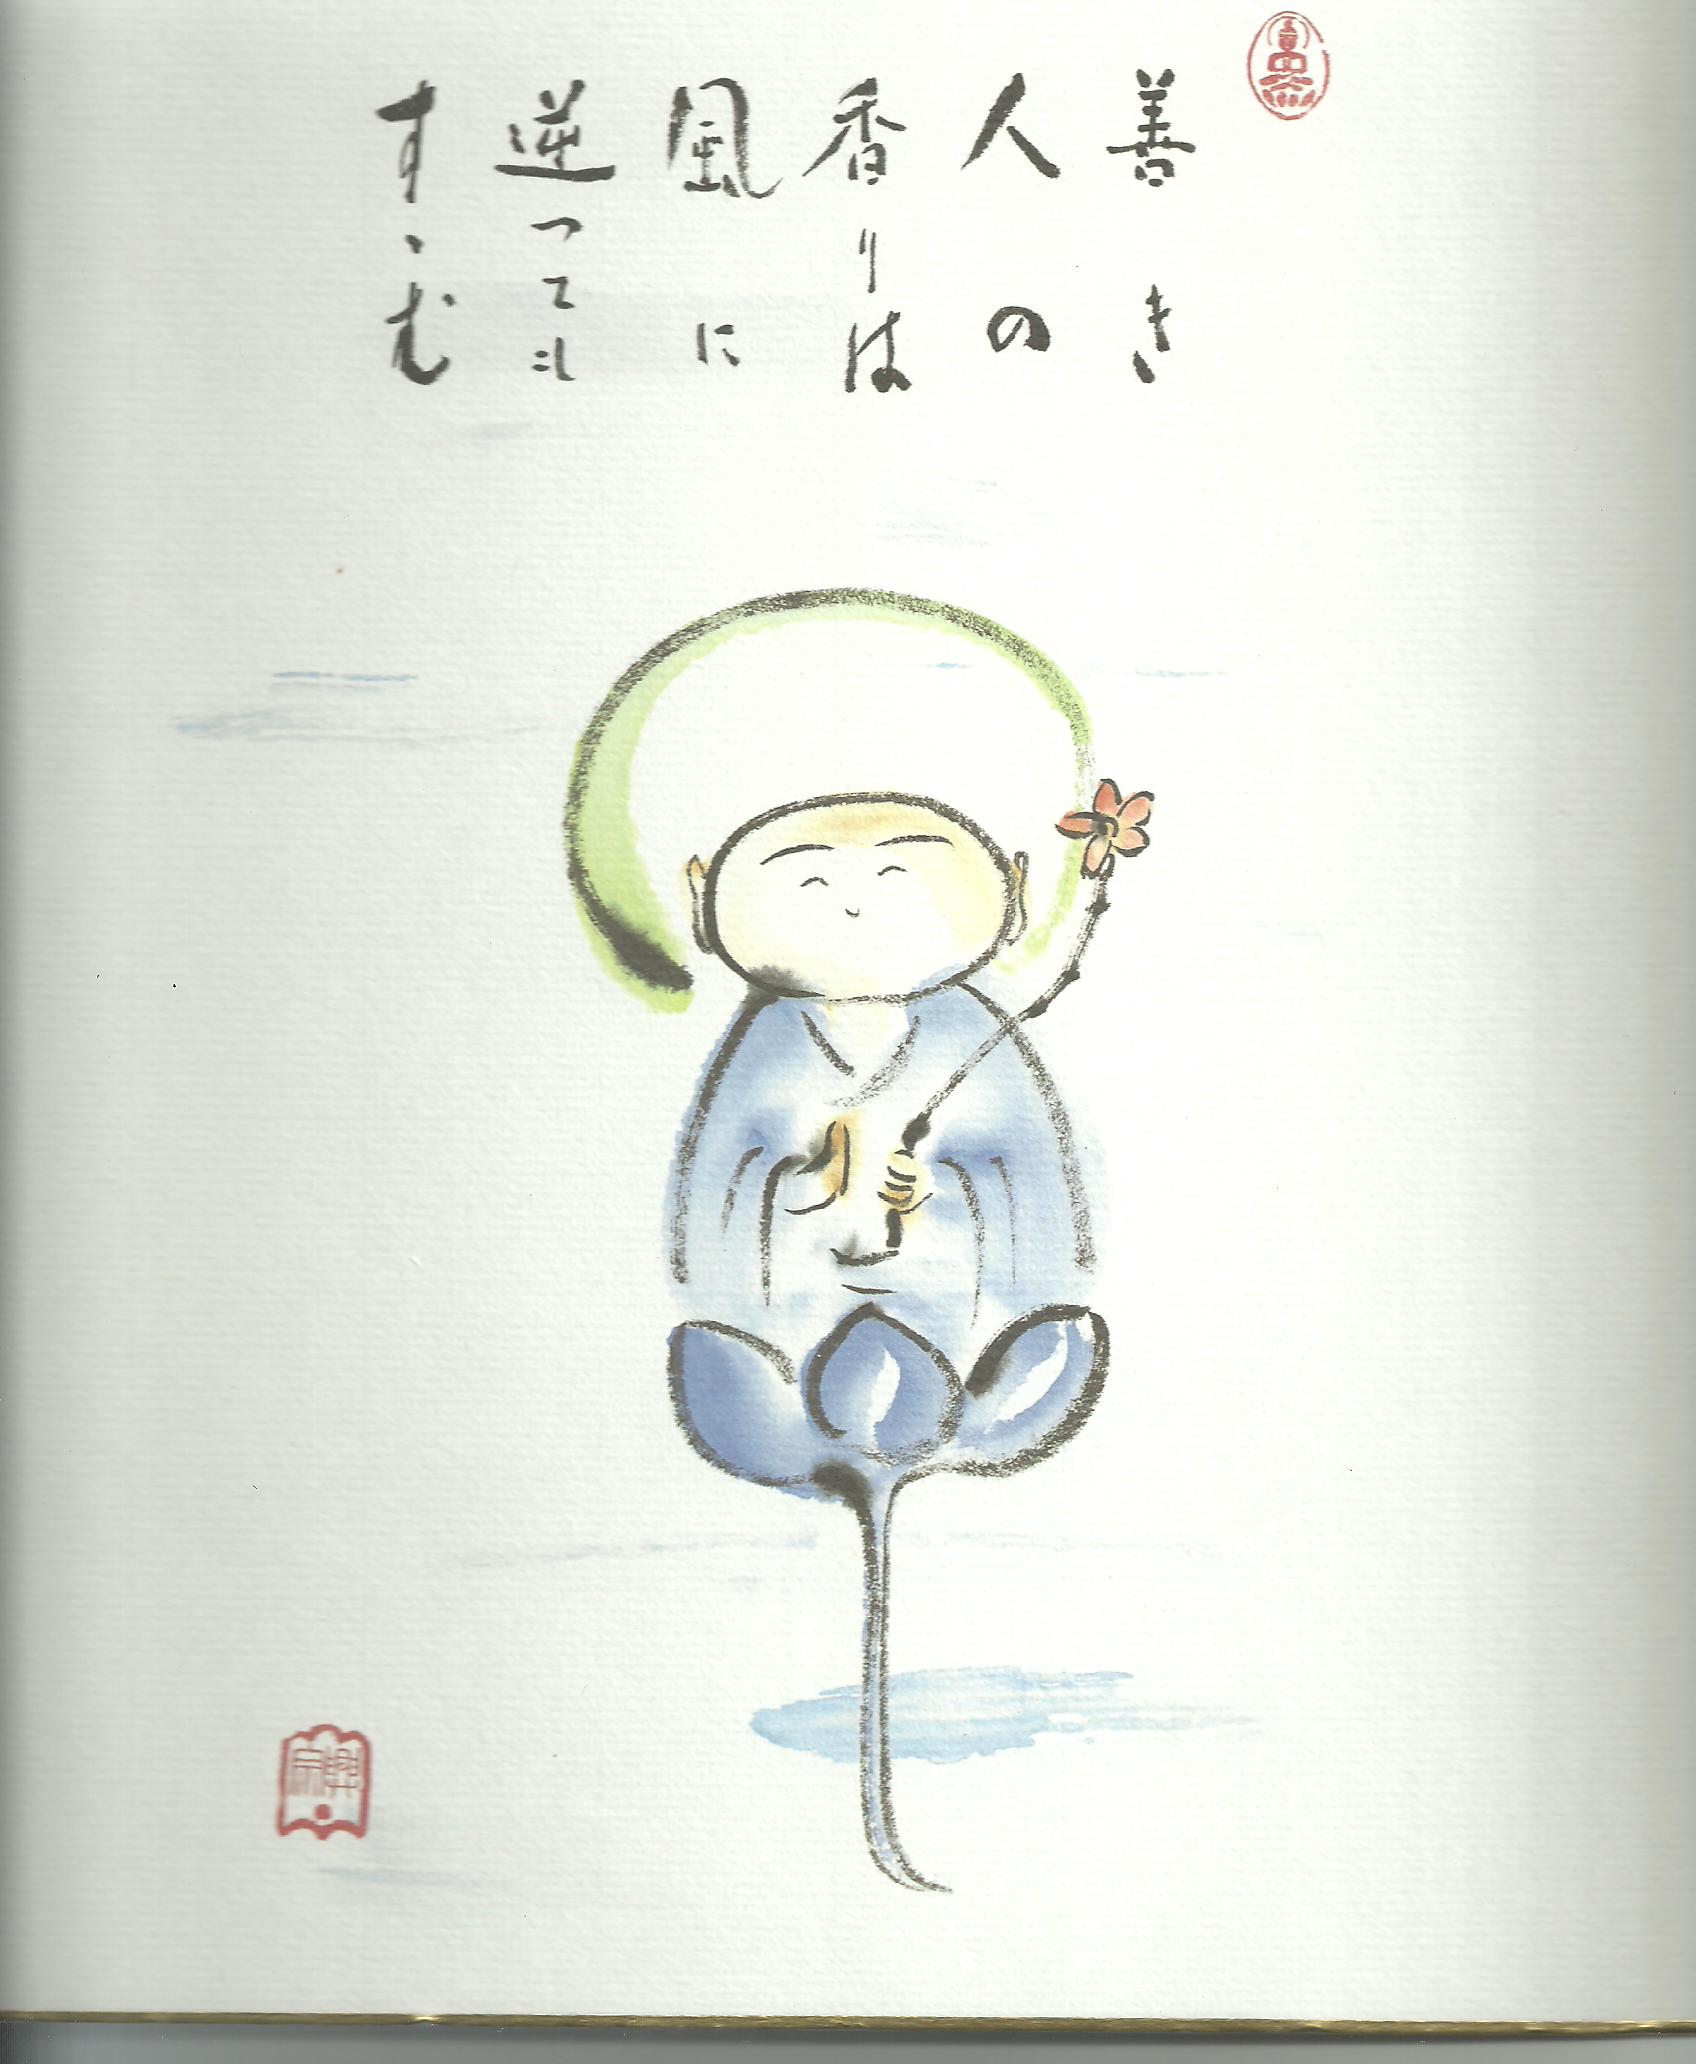 善き
人の
香りは
風に
逆っても
すゝむ